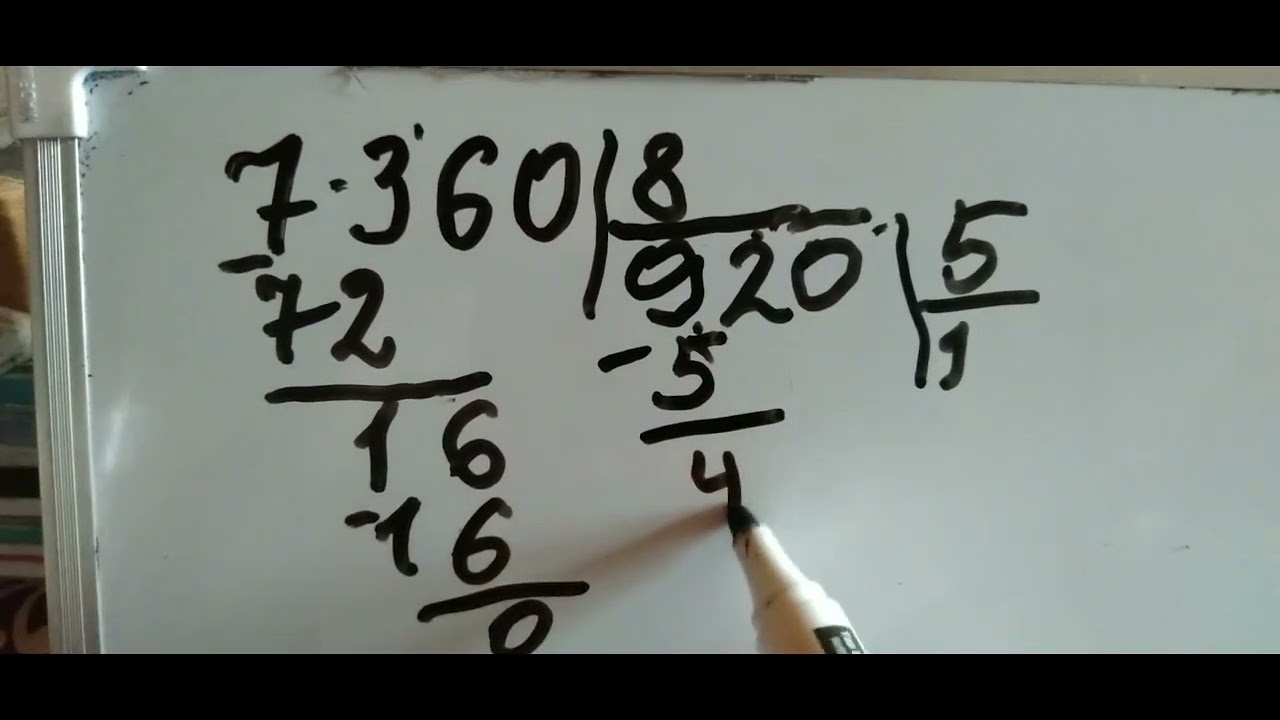 7·360 8
920 5
- 72
- 5 1
16
4
-16
0